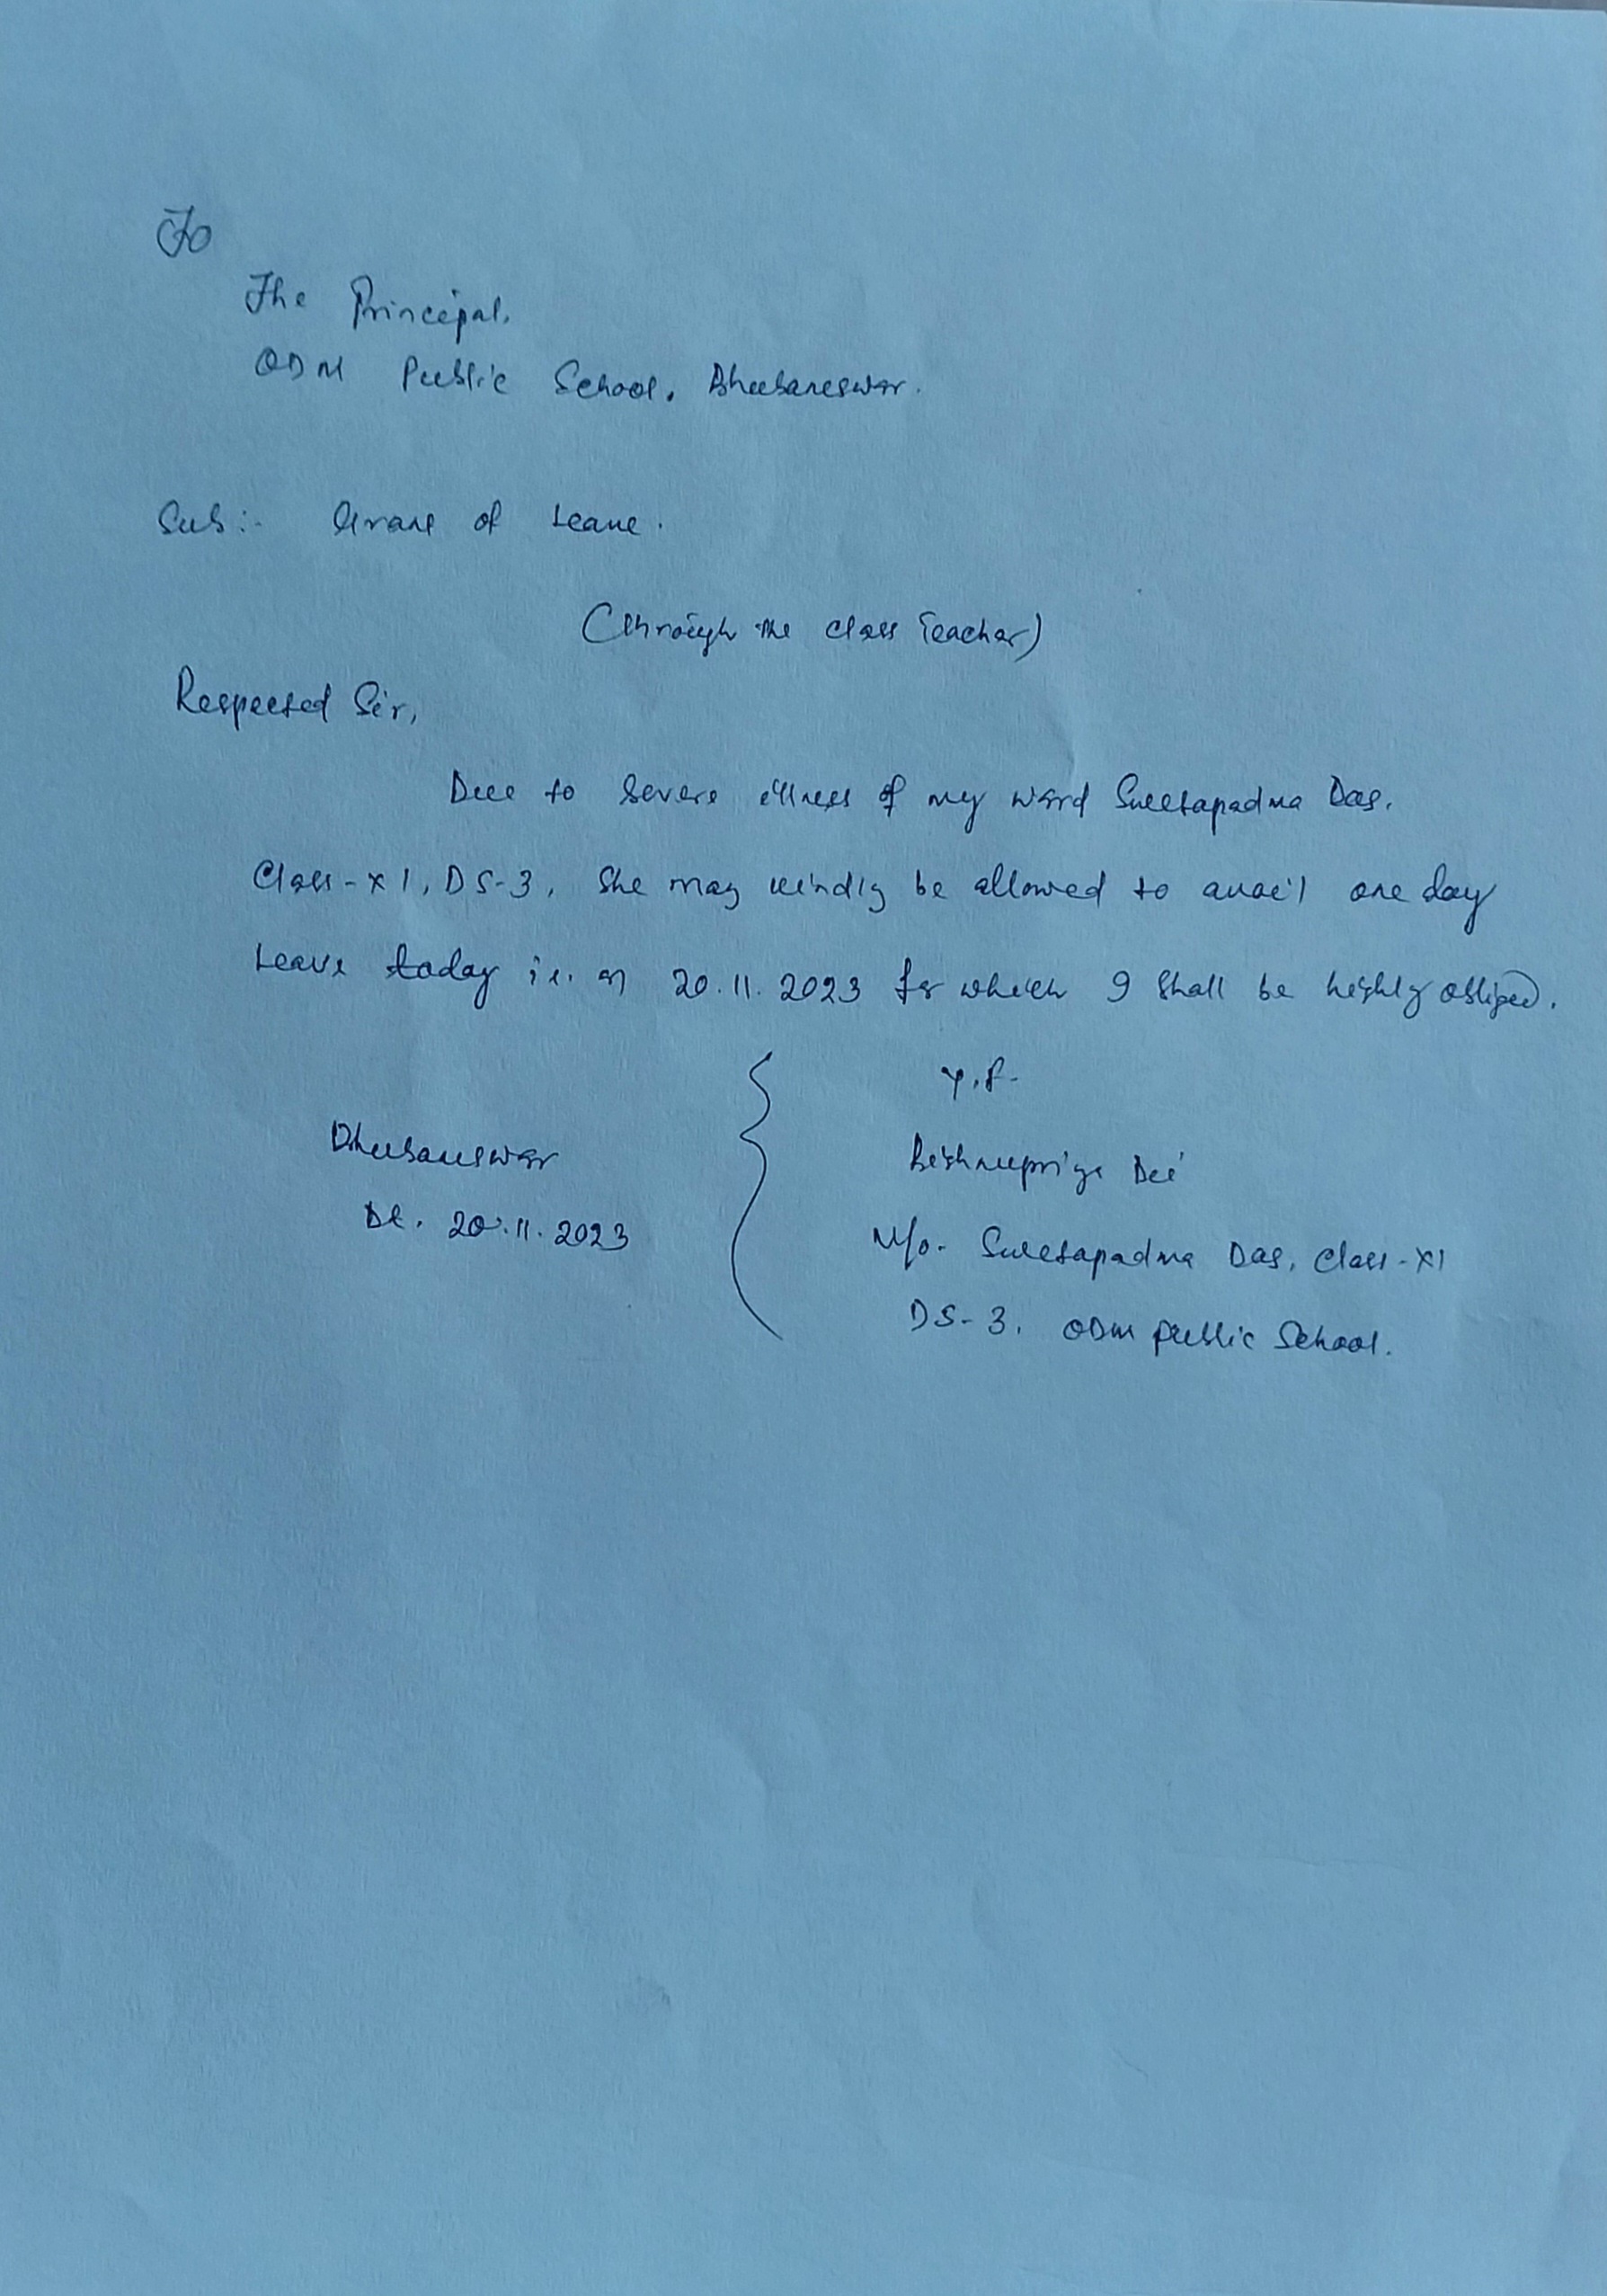 To
The Principal,
ODM Public School, Bhubaneswar.
Sub:- Grant of Leave.
(Through the Class Teacher)
Respected Sir,
Due to severe illness of my ward Sweetapadma Das,
Class-XI, DS-3, She may kindly be allowed to avail one day
Leave today i.e. on 20.11.2023 for which I shall be highly obliged.
Y.f.
Bhubaneswar
Dt. 20.11.2023
Bishnupriya
M/o- Sweetapadma Das, Class-XI
DS-3, ODM Public School.